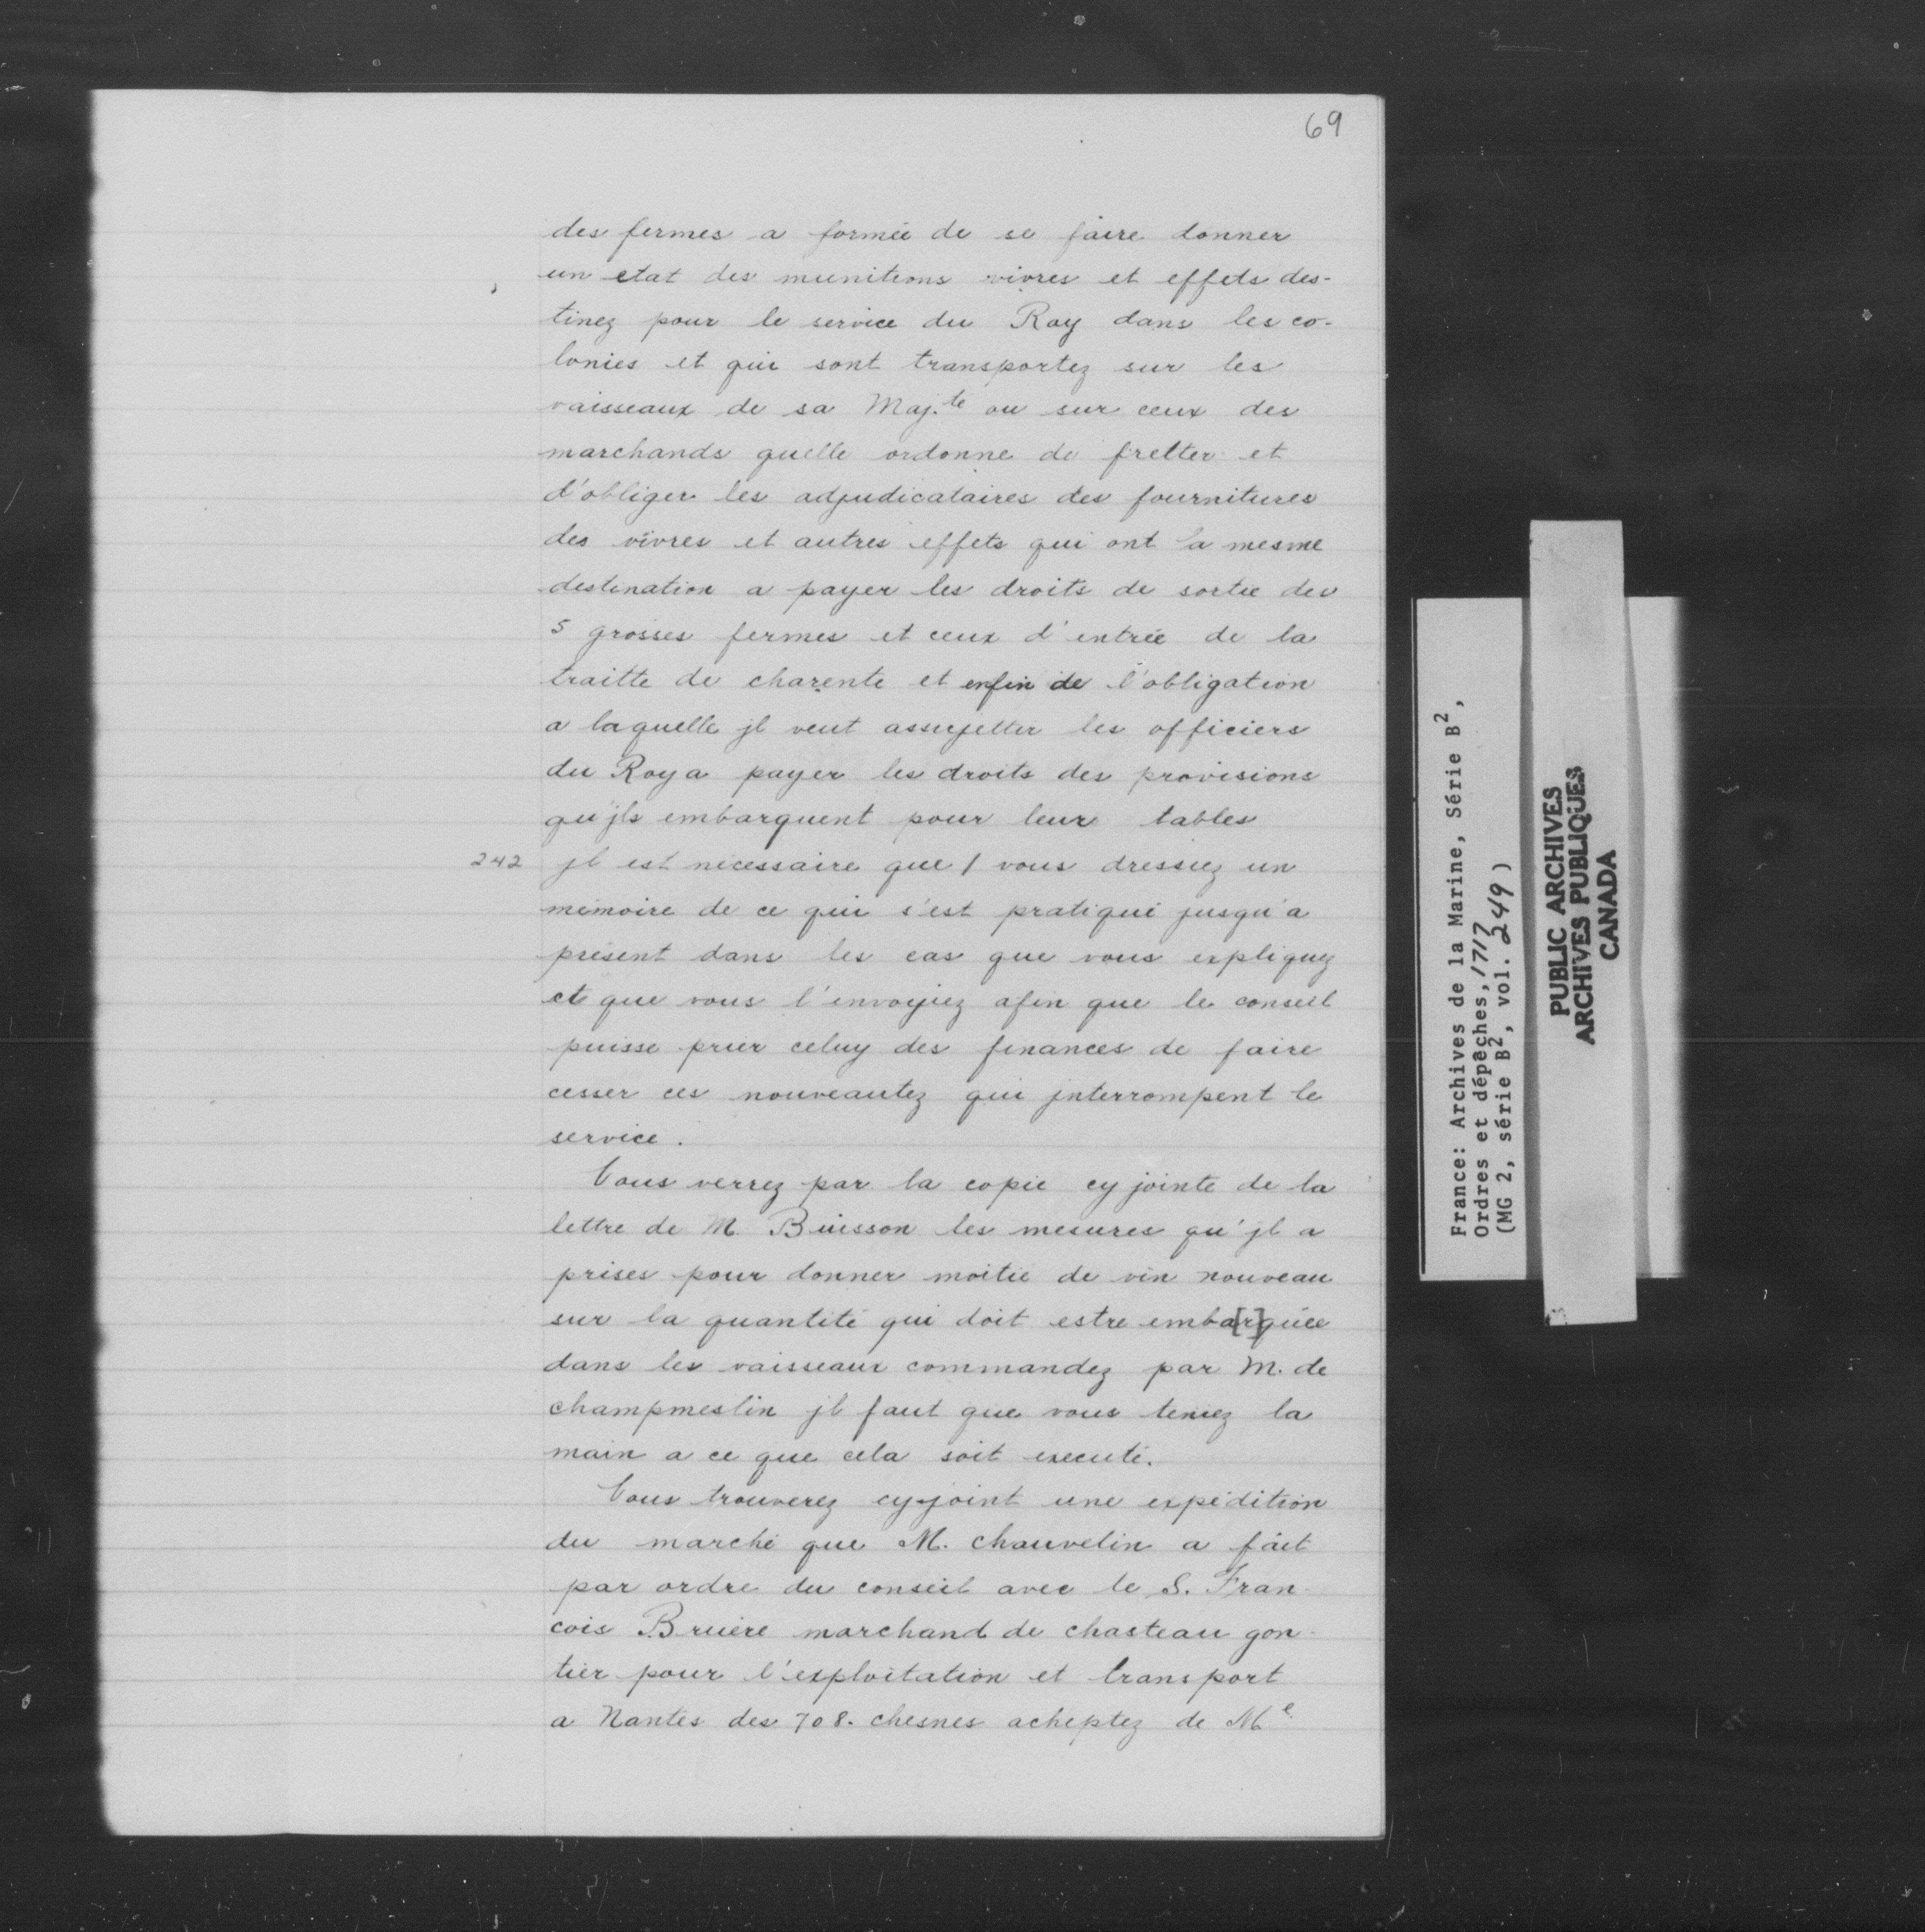 69
des fermes a formée de se faire donner
un etat des munitions vivres et effets des-
tinez pour le service du Roy dans les co-
lonies et qui sont transportez sur les
vaisseaux de sa Maj.té ou sur ceux des
marchands quelle ordonne de fretter et
d'obliger les adjudicataires des fournitures
des vivres et autres effets qui ont la mesme
destination a payer les droits de sortie des
5 grosses fermes et ceux d'entrée de la
traitte de charente et enfin de l'obligation
a laquelle jl veut assujetter les officiers
du Roy a payer les droits des provisions
qu'jls embarquent pour leur tables
242 jl est nécessaire que / vous dressiez un
mémoire de ce qui s'est pratiqué jusqu'a
présent dans les cas que vous expliquez
et que vous l'envoyiez afin que le conseil
puisse prier celuy des finances de faire
cesser ces nouveautez qui jnterrompent le
service.
Vous verrez par la copie cy jointe de la
lettre de M. Buisson les mesures qu'jl a
prises pour donner moitié de vin nouveau
sur la quantité qui doit estre emba[r]quée
dans les vaisseaux commandez par M. de
champmeslin jl faut que vous teniez la
main a ce que cela soit executé.
Vous trouverez cy-joint une expédition
du marché que M. Chauvelin a fait
par ordre du conseil avec le S. Fran-
cois Bruère marchand de chasteau gon-
tier pour l'exploitation et transport
a Nantes des 708. chesnes acheptez de Me.
France: Archives de la Marine, Série B2,
Ordres et dépêches, 1717
(MG 2, série B2, vol. 249)
PUBLIC ARCHIVES
ARCHIVES PUBLIQUES
CANADA